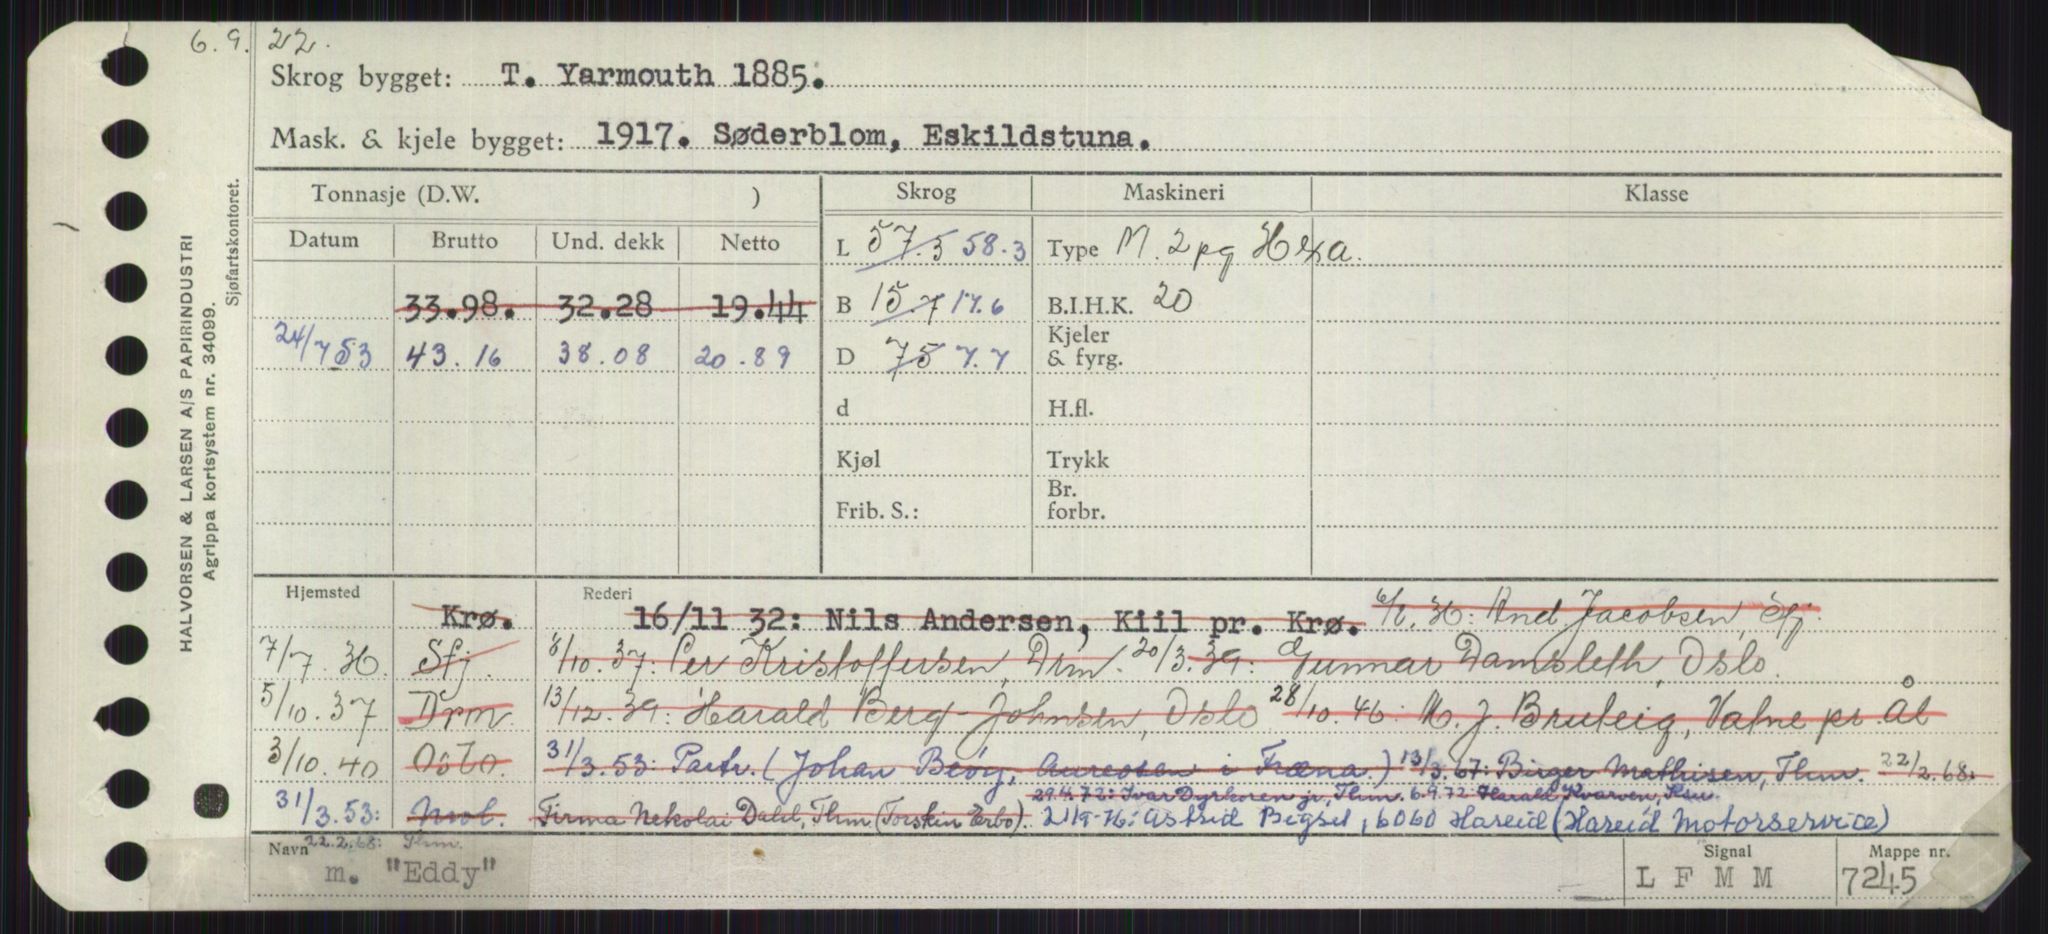 6.9.22.
Skrog bygget: T. Yarmouth 1885.
Mask. & kjele bygget: 1917. Søderblom, Eskildstuna.
HALVORSEN & LARSEN A/S PAPIRINDUSTRI
Agrippa kortsystem nr. 34099.
Sjøfartskontoret.
Tonnasje (D.W. ) Skrog Maskineri Klasse
Datum Brutto Und. dekk Netto L 57.5 58.3 Type M. 2pg Hexa.
33.98. 32.28 19.44 B 15.7 17.6 B.I.H.K. 20
24/7 53 43.16 38.08 20.89 D 75 7.7 Kjeler & fyrg.
d H.fl.
Kjøl Trykk
Frib. S.: Br. forbr.
Hjemsted Rederi
Krø. 16/11 32: Nils Andersen, Kiil pr. Krø. 36: And. Jacobsen, Sfj
7/7.36 Sfj. 6/10.37: Per Kristoffersen, Drm. 20/3.39: Gunnar Damsleth, Oslo.
5/10.37 Drm. 13/12.39: Harald Berg-Johnsen, Oslo 28/10.46: M. J. Bruteig, Vatne pr. Ål
3/10.40 Oslo. 31/3.53: Partr. (Johan Beøy, Aureosen i Fræna.) 13/3.67: Birger Mathisen, Thm. 22/2.68:
29.4.72: Ivar Dyrkoren jr., Thm. 6.9.72 Harald Kvarven,
31/3.53: Firma Nekolai Dahl, Thm (Torskin Erbo). 21/9-76: Astrid Bigset, 6060 Hareid (Hareid Motorservice)
Navn 22.2.68: Thm. Signal Mappe nr.
m. "Eddy" L F M M 7245